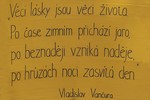 „Věci lásky jsou věci života.
Po čase zimním přichází jaro,
po beznaději vzniká naděje,
po hrůzách noci zasvítá den"
Vladislav Vančura